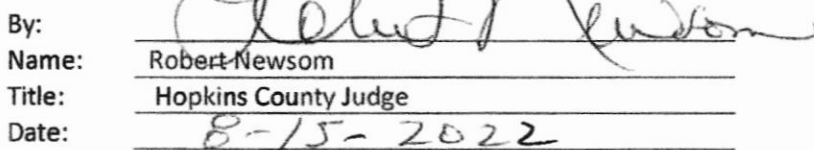 By: Robert Newsom
Name: Robert Newsom
Title: Hopkins County Judge
Date: 8-15-2022